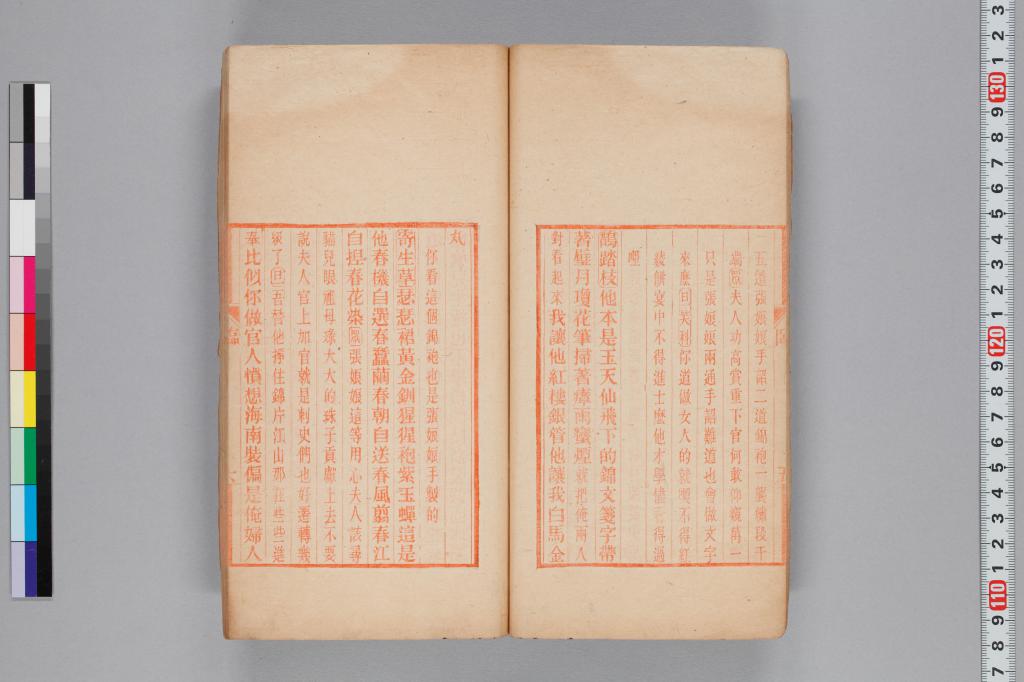 五道張娘娘手詔二道錦袍一襲繡段千
端鳳夫人功高賞重下官何敢仰窺萬一
只是張娘娘兩通手詔難道也會做文字
來麽旦笑科你道做女人的就
裝餅宴中不得進士麽他才學儘得過
哩
鵲踏枝他本是玉天仙飛下的錦文箋字帶
著莊月瓊花筆掃著瘴雨蠻煙就把俺兩人
對看起來我讓他紅樓銀管他讓我白馬金
丸
你看這個錦袍也是張娘娘手製的
寄生草瑟瑟裙黃金釧猩猩袍紫玉蟬這是
他春機自選春蠶繭春朝自送春風翦春江
自捏春花染鳳張娘娘這等用心夫人該尋
貓兒眼祖母綠大大的珠子貢獻上去不要
說夫人官上加官就是刺史們也好遷轉幾
級了旦吾替他撑住錦片江山那在些些進
奉比似你做官人慣想海南裝偏是俺婦人